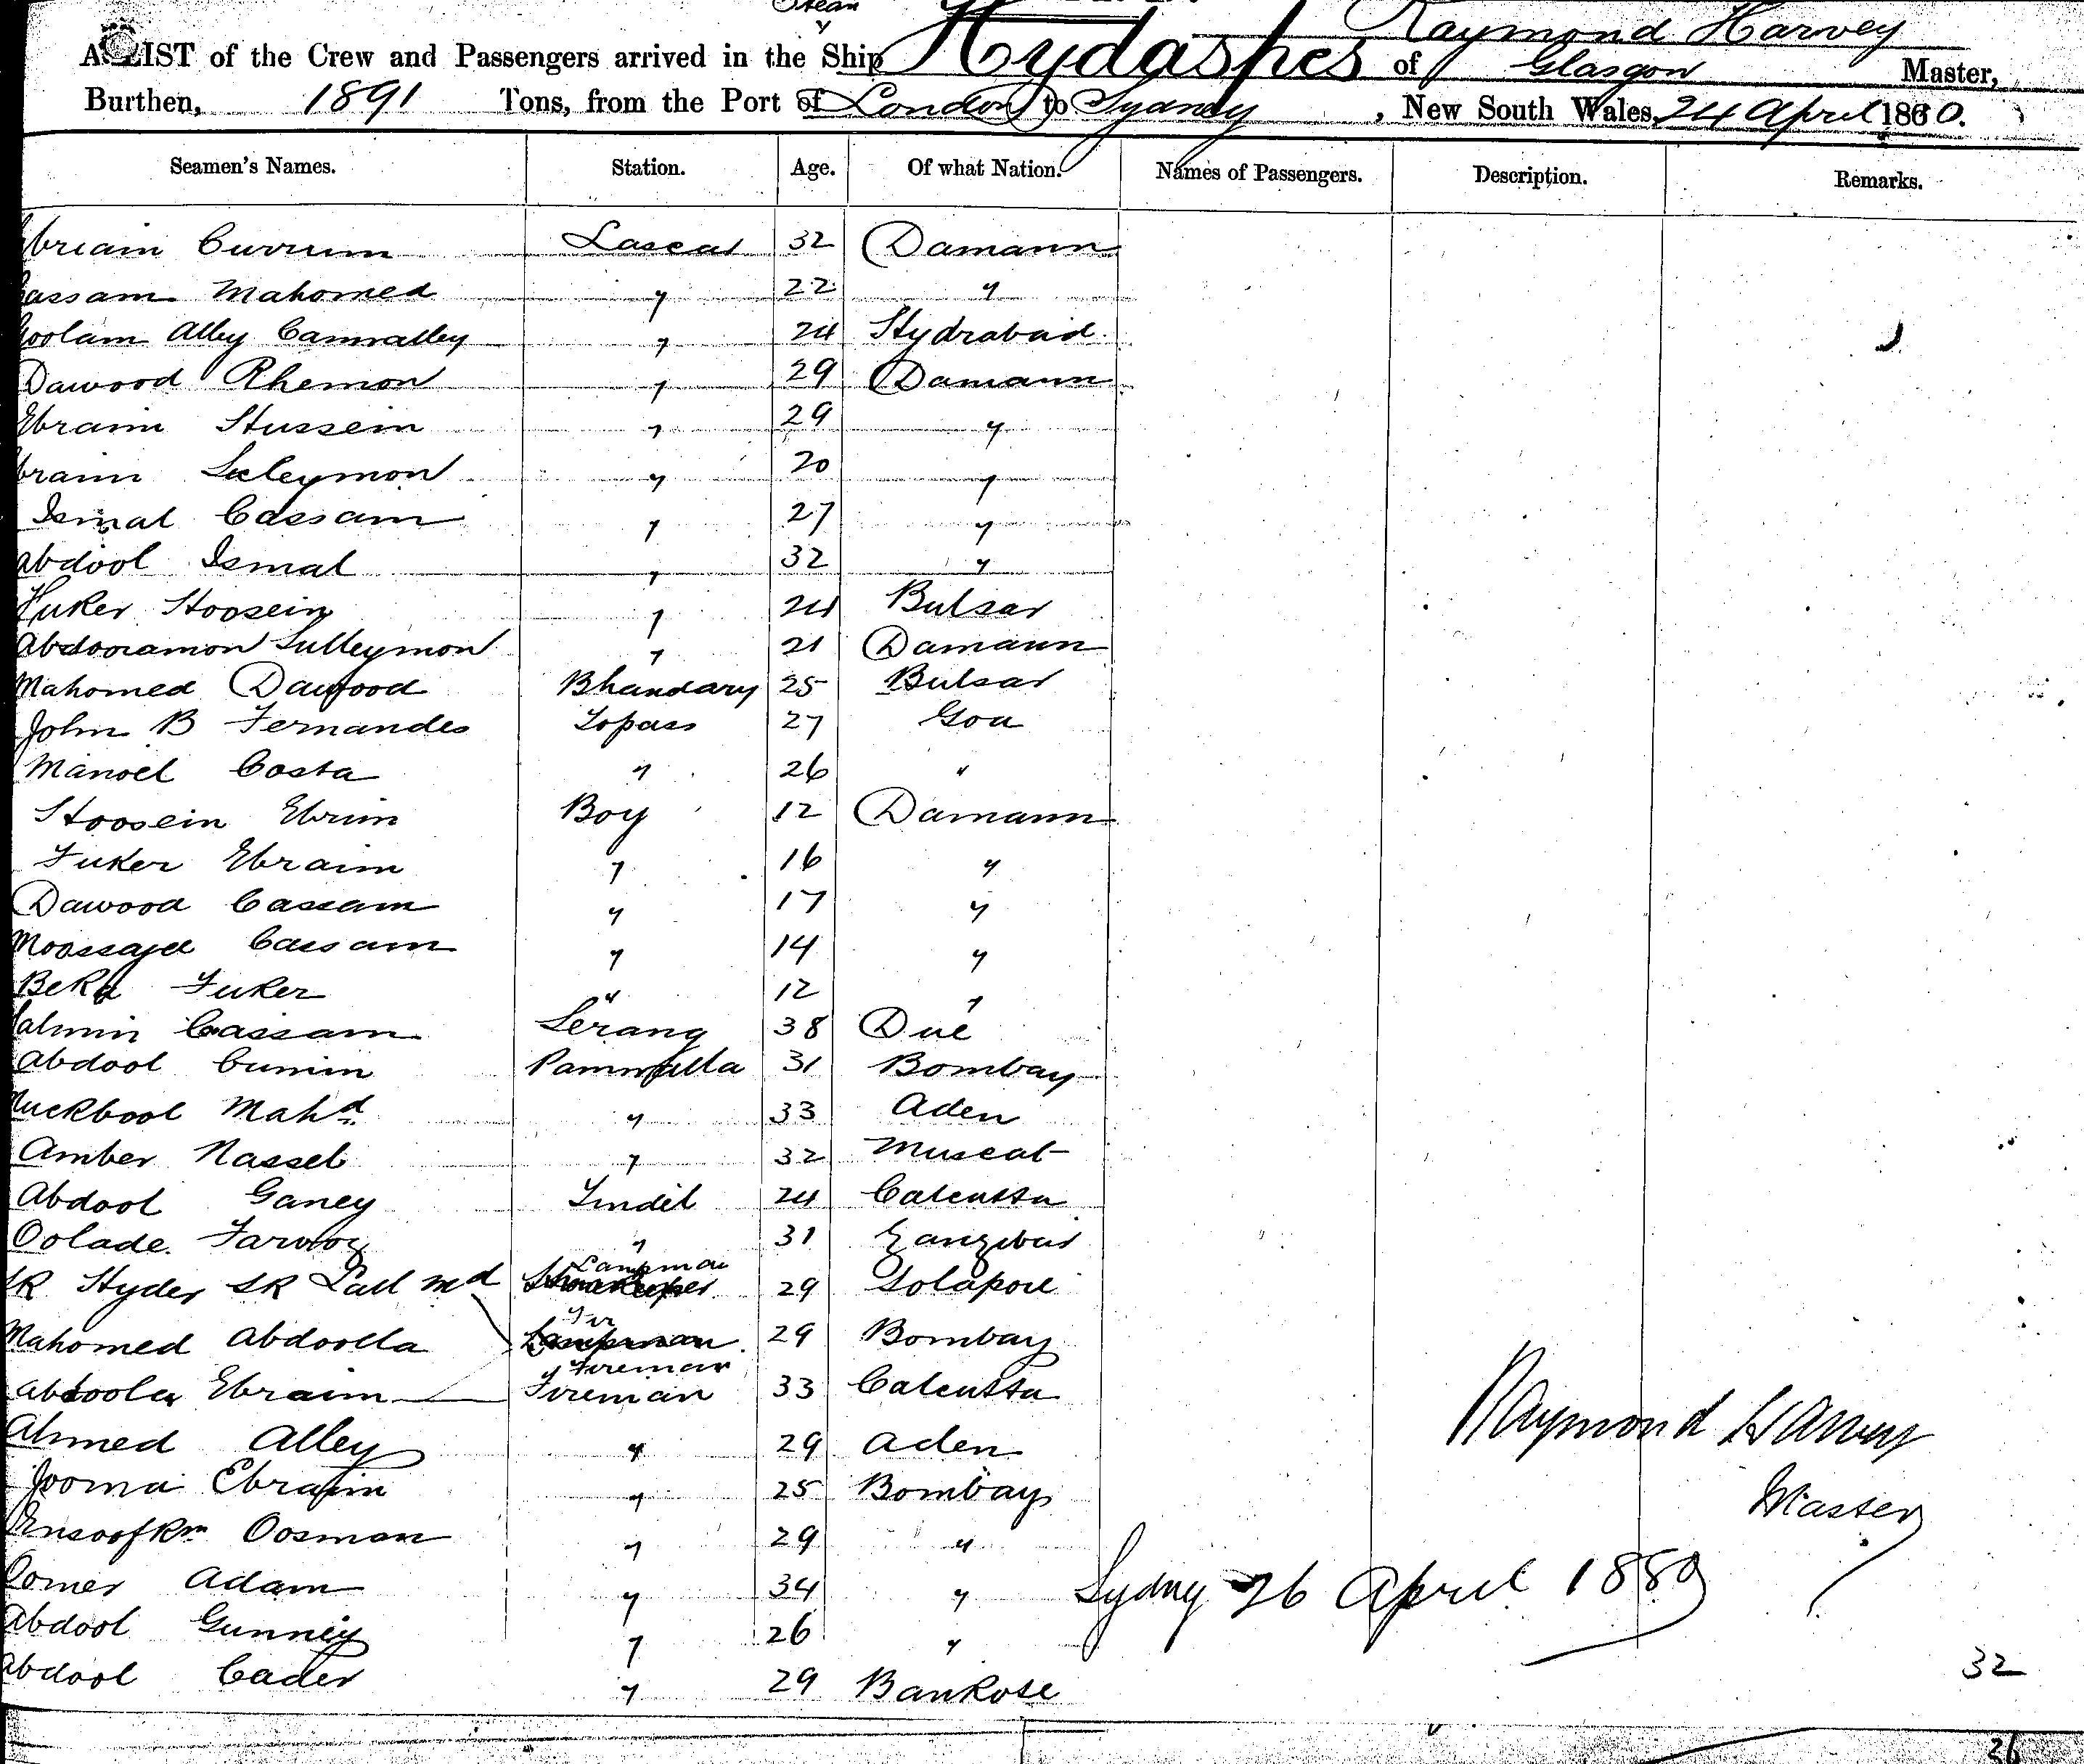 Steam
Raymond Harvey
A LIST of the Crew and Passengers arrived in the Ship Hydaspes of Glasgow Master,
Burthen, 1891 Tons, from the Port of London to Sydney, New South Wales, 24 April 1880.
Seamen's Names. Station. Age. Of what Nation. Names of Passengers. Description. Remarks.
Currum Lascar 32 Damann
Mahomed " 22 "
Goolam Alley Camralley " 24 Hydrabad
Dawood Rhemon " 29 Damann
Ebraim Hussein " 29 "
Ebraim Suleymon " 20 "
Ismal Cassam " 27 "
Abdool Ismal " 32 "
Fuker Hoosein " 24 Bulsar
Abdooramon Sulleymon " 21 Damann
Mahomed Dawood Bhandary 25 Bulsar
John B Fernandes Topass 27 Goa
Manoel Costa " 26 "
Hoosein Ebrim Boy 12 Damann
Fuker Ebraim " 16 "
Dawood Cassam " 17 "
Cassam " 14 "
Fuker " 12 "
Cassam Serang 38 Due
Abdool Cumin 31 Bombay
Muckbool Mahd " 33 Aden
Amber Nasseb " 32 Muscat
Abdool Ganey Tindil 24 Calcutta
Oolade " 31 Zanzibar
Lampman
SK Hyder SK Lall Md Storekeeper 29 Solapore
Fireman
Mahomed Abdoolla Lampman 29 Bombay
Abdoola Ebraim Fireman 33 Calcutta
Ahmed Alley " 29 Aden
Jooma Ebraim " 25 Bombay
Oosman " 29 "
Oomer Adam " 34 "
Abdool Gunney " 26 "
Abdool Cader " 29 Bankote
Raymond Harvey
Master
Sydny 26 April 1880
32
26